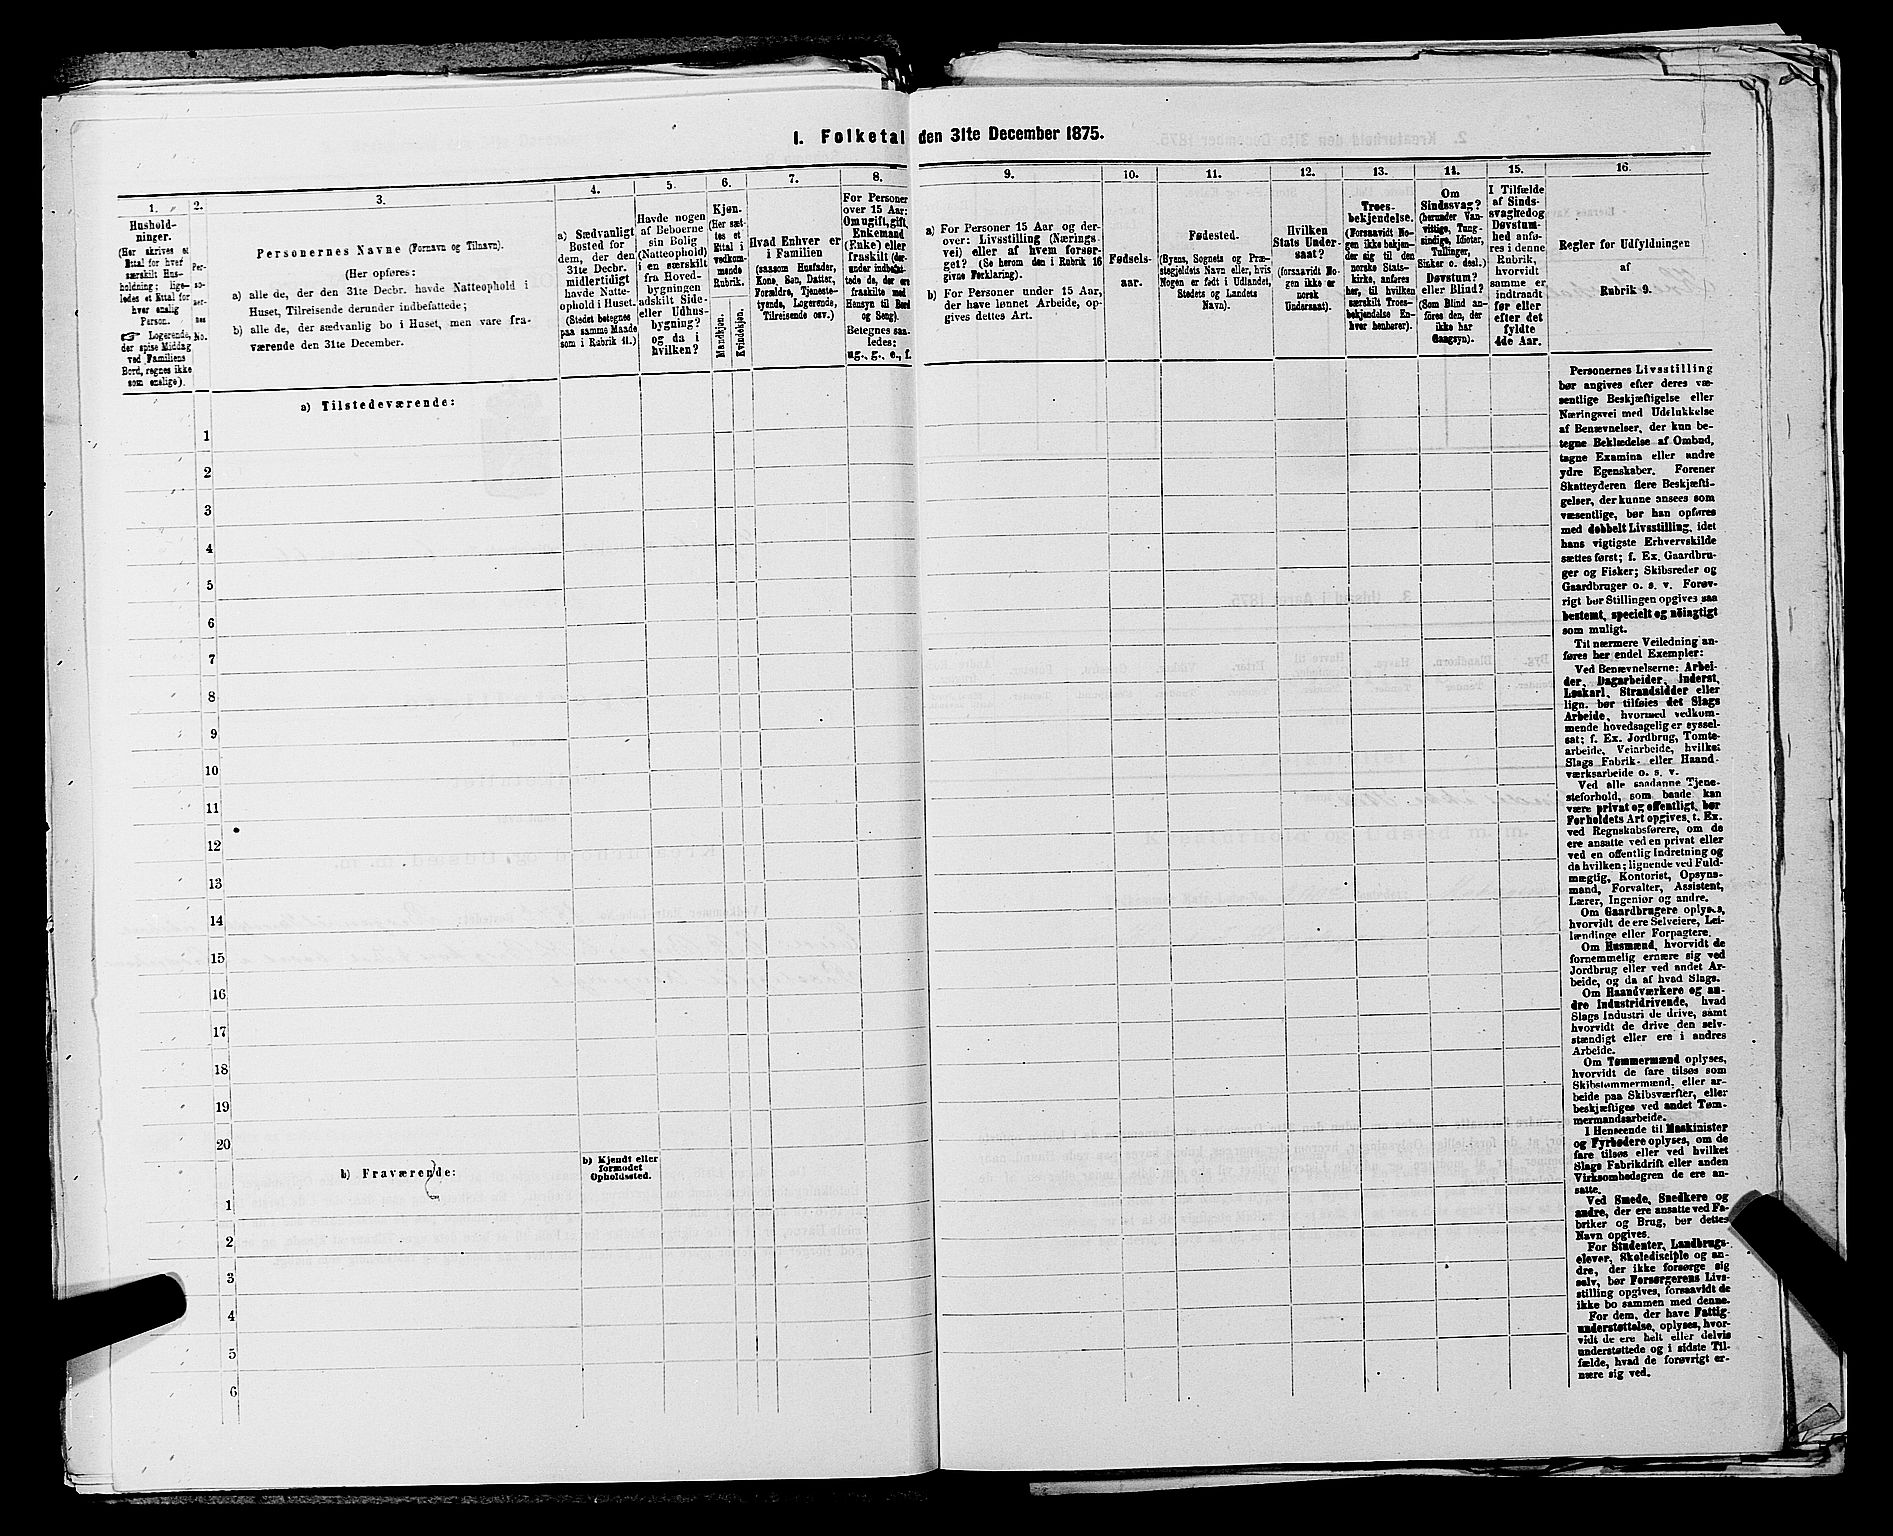 1. Folketal den 31te December 1875.
1.
Hushold-
ninger.
(Her skrives et
Ettal for hvert
særskilt Hus-
holdning; lige-
ledes et Ettal for
hver enslig
Person.
☞ Logerende,
der spise Middag
ved Familiens
Bord, regnes ikke
som enslige).
2.
Per-
so-
ner-
nes
No.
3.
Personernes Navne (Fornavn og Tilnavn).
(Her opføres:
a) alle de, der den 31te Decbr. havde Natteophold i
Huset, Tilreisende derunder indbefattede;
b) alle de, der sædvanlig bo i Huset, men vare fra-
værende den 31te December.
4.
a) Sædvanligt
Bosted for
dem, der den
31te Decbr.
midlertidigt
havde Natte-
ophold i Huset.
(Stedet betegnes
paa samme Maade
som i Rubrik 11.)
5.
Havde nogen
af Beboerne
sin Bolig
(Natteophold)
i en særskilt
fra Hoved-
bygningen
adskilt Side-
eller Udhus-
bygning?
og da i
hvilken?
6.
Kjøn.
(Her sæt-
tes et
Ettal i
vedkom-
mende
Rubrik.
Mandkjøn.
Kvindekjøn.
7.
Hvad Enhver er
i Familien
(saasom Husfader,
Kone, Søn, Datter,
Forældre, Tjeneste-
tyende, Logerende,
Tilreisende osv.)
8.
For Personer
over 15 Aar:
Om ugift, gift,
Enkemand
(Enke) eller
fraskilt (der-
under indbefat-
tede de, der ere
fraskilte med
Hensyn til Bord
og Seng).
Betegnes saa-
ledes:
ug., g., e., f.
9.
a) For Personer 15 Aar og der-
over: Livsstilling (Nærings-
vei) eller af hvem forsør-
get? (Se herom den i Rubrik 16
givne Forklaring).
b) For Personer under 15 Aar,
der have lønnet Arbeide, op-
gives dettes Art.
10.
Fødsels-
aar.
11.
Fødested.
(Byens, Sognets og Præ-
stegjeldets Navn eller, hvis
Nogen er født i Udlandet,
Stedets og Landets
Navn).
12.
Hvilken
Stats Under-
saat?
(forsaavidt No-
gen ikke er
norsk
Undersaat).
13.
Troes-
bekjendelse.
(Forsaavidt No-
gen ikke bekjen-
der sig til den
norske Stats-
kirke, anføres
her, til hvilken
særskilt Troes-
bekjendelse En-
hver henhører).
14.
Om
Sindssvag?
(herunder Van-
vittige, Tung-
sindige, Idioter,
Tullinger,
Sinker o. desl.)
Døvstum?
eller Blind?
(Som Blind an-
føres den, der
ikke har
Gangsyn).
15.
I Tilfælde
af Sinds-
svaghed og
Døvstum-
hed anfø-
res i denne
Rubrik,
hvorvidt
samme er
indtraadt
før eller
efter det
fyldte
4de Aar.
16.
Regler for Udfyldningen
af
Rubrik 9.
a) Tilstedeværende:
1
2
3
4
5
6
7
8
9
10
11
12
13
14
15
16
17
18
19
20
b) Fraværende:
b) Kjendt eller
formodet
Opholdssted.
1
2
3
4
5
6
Personernes Livsstilling
bør angives efter deres væ-
sentlige Beskjæftigelse eller
Næringsvei med Udelukkelse
af Benævnelser, der kun be-
tegne Beklædelse af Ombud,
tagne Examina eller andre
ydre Egenskaber. Forener
Skatteyderen flere Beskjæfti-
gelser, der kunne ansees som
væsentlige, bør han opføres
med dobbelt Livsstilling, idet
hans vigtigste Erhvervskilde
sættes først; f. Ex. Gaardbru-
ger og Fisker; Skibsreder og
Gaardbruger o. s. v. Forøv-
rigt bør Stillingen opgives saa
bestemt, specielt og nöiagtigt
som muligt.
Til nærmere Veiledning an-
føres her endel Exempler:
Ved Benævnelserne: Arbei-
der, Dagarbeider, Inderst,
Løskarl, Strandsidder eller
lign. bør tilføies det Slags
Arbeide, hvormed vedkom-
mende hovedsagelig er syssel-
sat; f. Ex. Jordbrug, Tomte-
arbeide, Veiarbeide, hvilket
Slags Fabrik- eller Haand-
værksarbeide o. s. v.
Ved alle saadanne Tjene-
steforhold, som baade kan
være privat og offentligt, bør
Forholdets Art opgives, t. Ex.
ved Regnskabsførere, om de
ere ansatte ved en privat eller
ved en offentlig Indretning og
da hvilken; lignende ved Fuld-
mægtig, Kontorist, Opsyns-
mand, Forvalter, Assistent,
Lærer, Ingeniør og andre.
Om Gaardbrugere oplyses,
hvorvidt de ere Selveiere, Lei-
lændinge eller Forpagtere.
Om Husmænd, hvorvidt de
fornemmelig ernære sig ved
Jordbrug eller ved andet Ar-
beide, og da af hvad Slags.
Om Haandværkere og an-
dre Industridrivende, hvad
Slags Industri de drive, samt
hvorvidt de drive den selv-
stændigt eller ere i andres
Arbeide.
Om Tømmermænd oplyses,
hvorvidt de fare tilsøs som
Skibstømmermænd, eller ar-
beide paa Skibsværfter, eller
beskjæftiges ved andet Tøm-
mermandsarbeide.
I Henseende til Maskinister
og Fyrbødere oplyses, om de
fare tilsøs eller ved hvilket
Slags Fabrikdrift eller anden
Virksomhedsgren de ere an-
satte.
Ved Smede, Snedkere og
andre, der ere ansatte ved Fa-
briker og Brug, bør dettes
Navn opgives.
For Studenter, Landbrugs-
elever, Skoledisciple og an-
dre, der ikke forsørge sig
selv, bør Forsørgerens Livs-
stilling opgives, forsaavidt de
ikke bo sammen med denne.
For dem, der have Fattig-
understøttelse, oplyses, hvor-
vidt de ere helt eller delvis
understøttede og i sidste Til-
fælde, hvad de forøvrigt er-
nære sig ved.